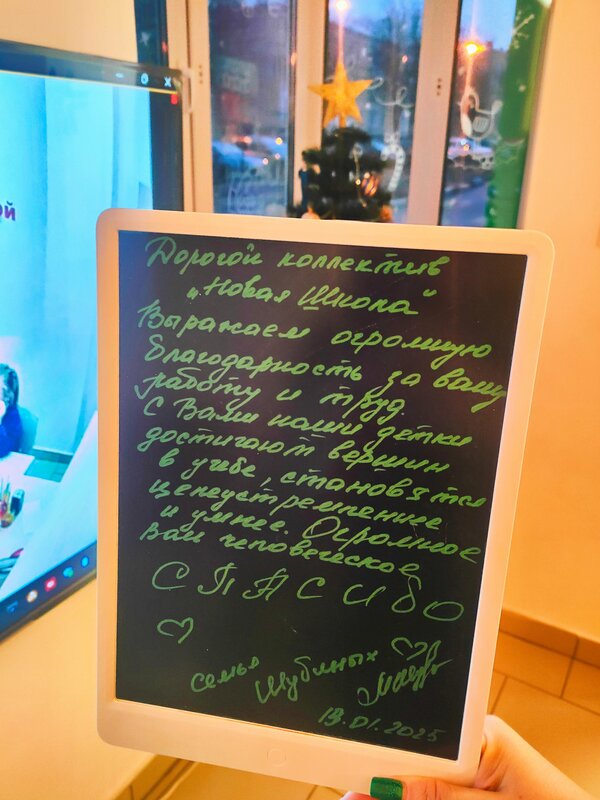 ой
Дорогой коллектив
„Новая Школа“
Выражаем огромную
благодарность за вашу
работу и труд.
С Вами наши детки
достигают вершин
в учебе, становятся
целеустремленнее
и умнее. Огромное
Вам человеческое
СПАСИбО
семья Шубиных
13.01.2025